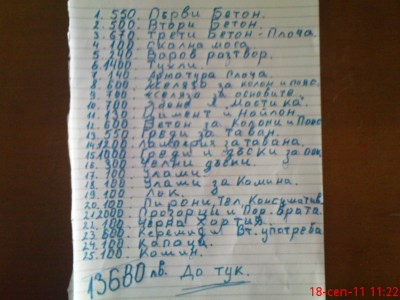 1. 550. Първи Бетон.
2. 500. Втори Бетон.
3. 670. Трети Бетон-Плоча
4. 100. Скална маса.
5. 240. Варов разтвор.
6. 1400 Тухли.
7. 140. Арматура Плоча.
8. 600. Желязо за колон и
9. желязо за основите.
10. 700. "Мостика"
11. 130. Цимент и Найлон.
12. 600. Бетон за Колони и
13. 550 Греди за таван.
14. 1200. Ламперия за тавана.
15. 1000. Греди и дъски за
16. 300 Челни дъски.
17. 100 Улами.
18. 100 Улами за Комина.
19. 100. Лак.
20. 100. Пирони, Тел, Консумативи
21. 2000. Прозорци и Пор. врата.
22. 100. Черна Хартия
23. 600. Керемиди Вт. употреба
24. 100. Капаци.
25. 100. Комин.
13680 лв. До тук.
18-сеп-11 11:22